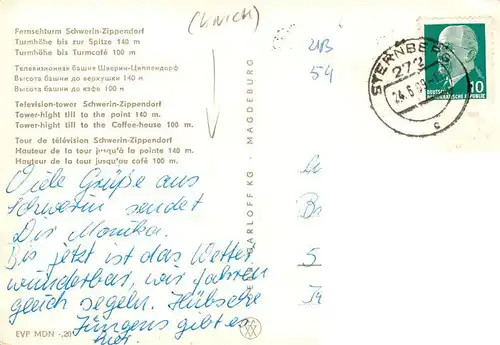 Fernsehturm Schwerin-Zippendorf
Turmhöhe bis zur Spitze 140 m
Turmhöhe bis Turmcafé 100 m
Телевизионная башня Шверин-Циппендорф
Высота башни до верхушки 140 м
Высота башни до кафе 100 м
Television-tower Schwerin-Zippendorf
Tower-hight till to the point 140 m.
Tower-hight till to the Coffee-house 100 m.
Tour de télévision Schwerin-Zippendorf
Hauteur de la tour jusqu'à la pointe 140 m.
Hauteur de la tour jusqu'au café 100 m.
Viele Grüße aus
Schwerin sendet
Dir Monika.
Bis jetzt ist das Wetter
wunderbar, wir fahren
gleich segeln. Hübsche
Jungens gibt es
hier.
EVP MDN -,20
BARLOFF KG · MAGDEBURG
54
STERNBERG
272
24.6.69
c
DEUTSCHE
DEMOKRATISCHE REPUBLIK
10
5